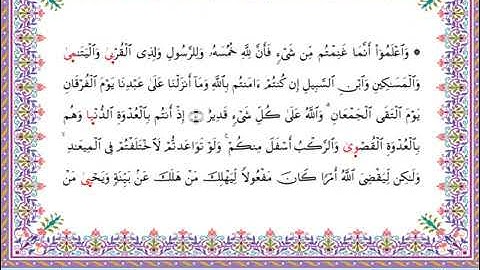 ۞ وَٱعْلَمُوٓا۟ أَنَّمَا غَنِمْتُم مِّن شَىْءٍ فَأَنَّ لِلَّهِ خُمُسَهُۥ وَلِلرَّسُولِ وَلِذِى ٱلْقُرْبَىٰ وَٱلْيَتَٰمَىٰ
وَٱلْمَسَٰكِينِ وَٱبْنِ ٱلسَّبِيلِ إِن كُنتُمْ ءَامَنتُم بِٱللَّهِ وَمَآ أَنزَلْنَا عَلَىٰ عَبْدِنَا يَوْمَ ٱلْفُرْقَانِ
يَوْمَ ٱلْتَقَى ٱلْجَمْعَانِ ۗ وَٱللَّهُ عَلَىٰ كُلِّ شَىْءٍ قَدِيرٌ إِذْ أَنتُم بِٱلْعُدْوَةِ ٱلدُّنْيَا وَهُم
بِٱلْعُدْوَةِ ٱلْقُصْوَىٰ وَٱلرَّكْبُ أَسْفَلَ مِنكُمْ ۚ وَلَوْ تَوَاعَدتُّمْ لَٱخْتَلَفْتُمْ فِى ٱلْمِيعَٰدِ ۙ
وَلَٰكِن لِّيَقْضِىَ ٱللَّهُ أَمْرًا كَانَ مَفْعُولًا لِّيَهْلِكَ مَنْ هَلَكَ عَنۢ بَيِّنَةٍ وَيَحْيَىٰ مَنْ